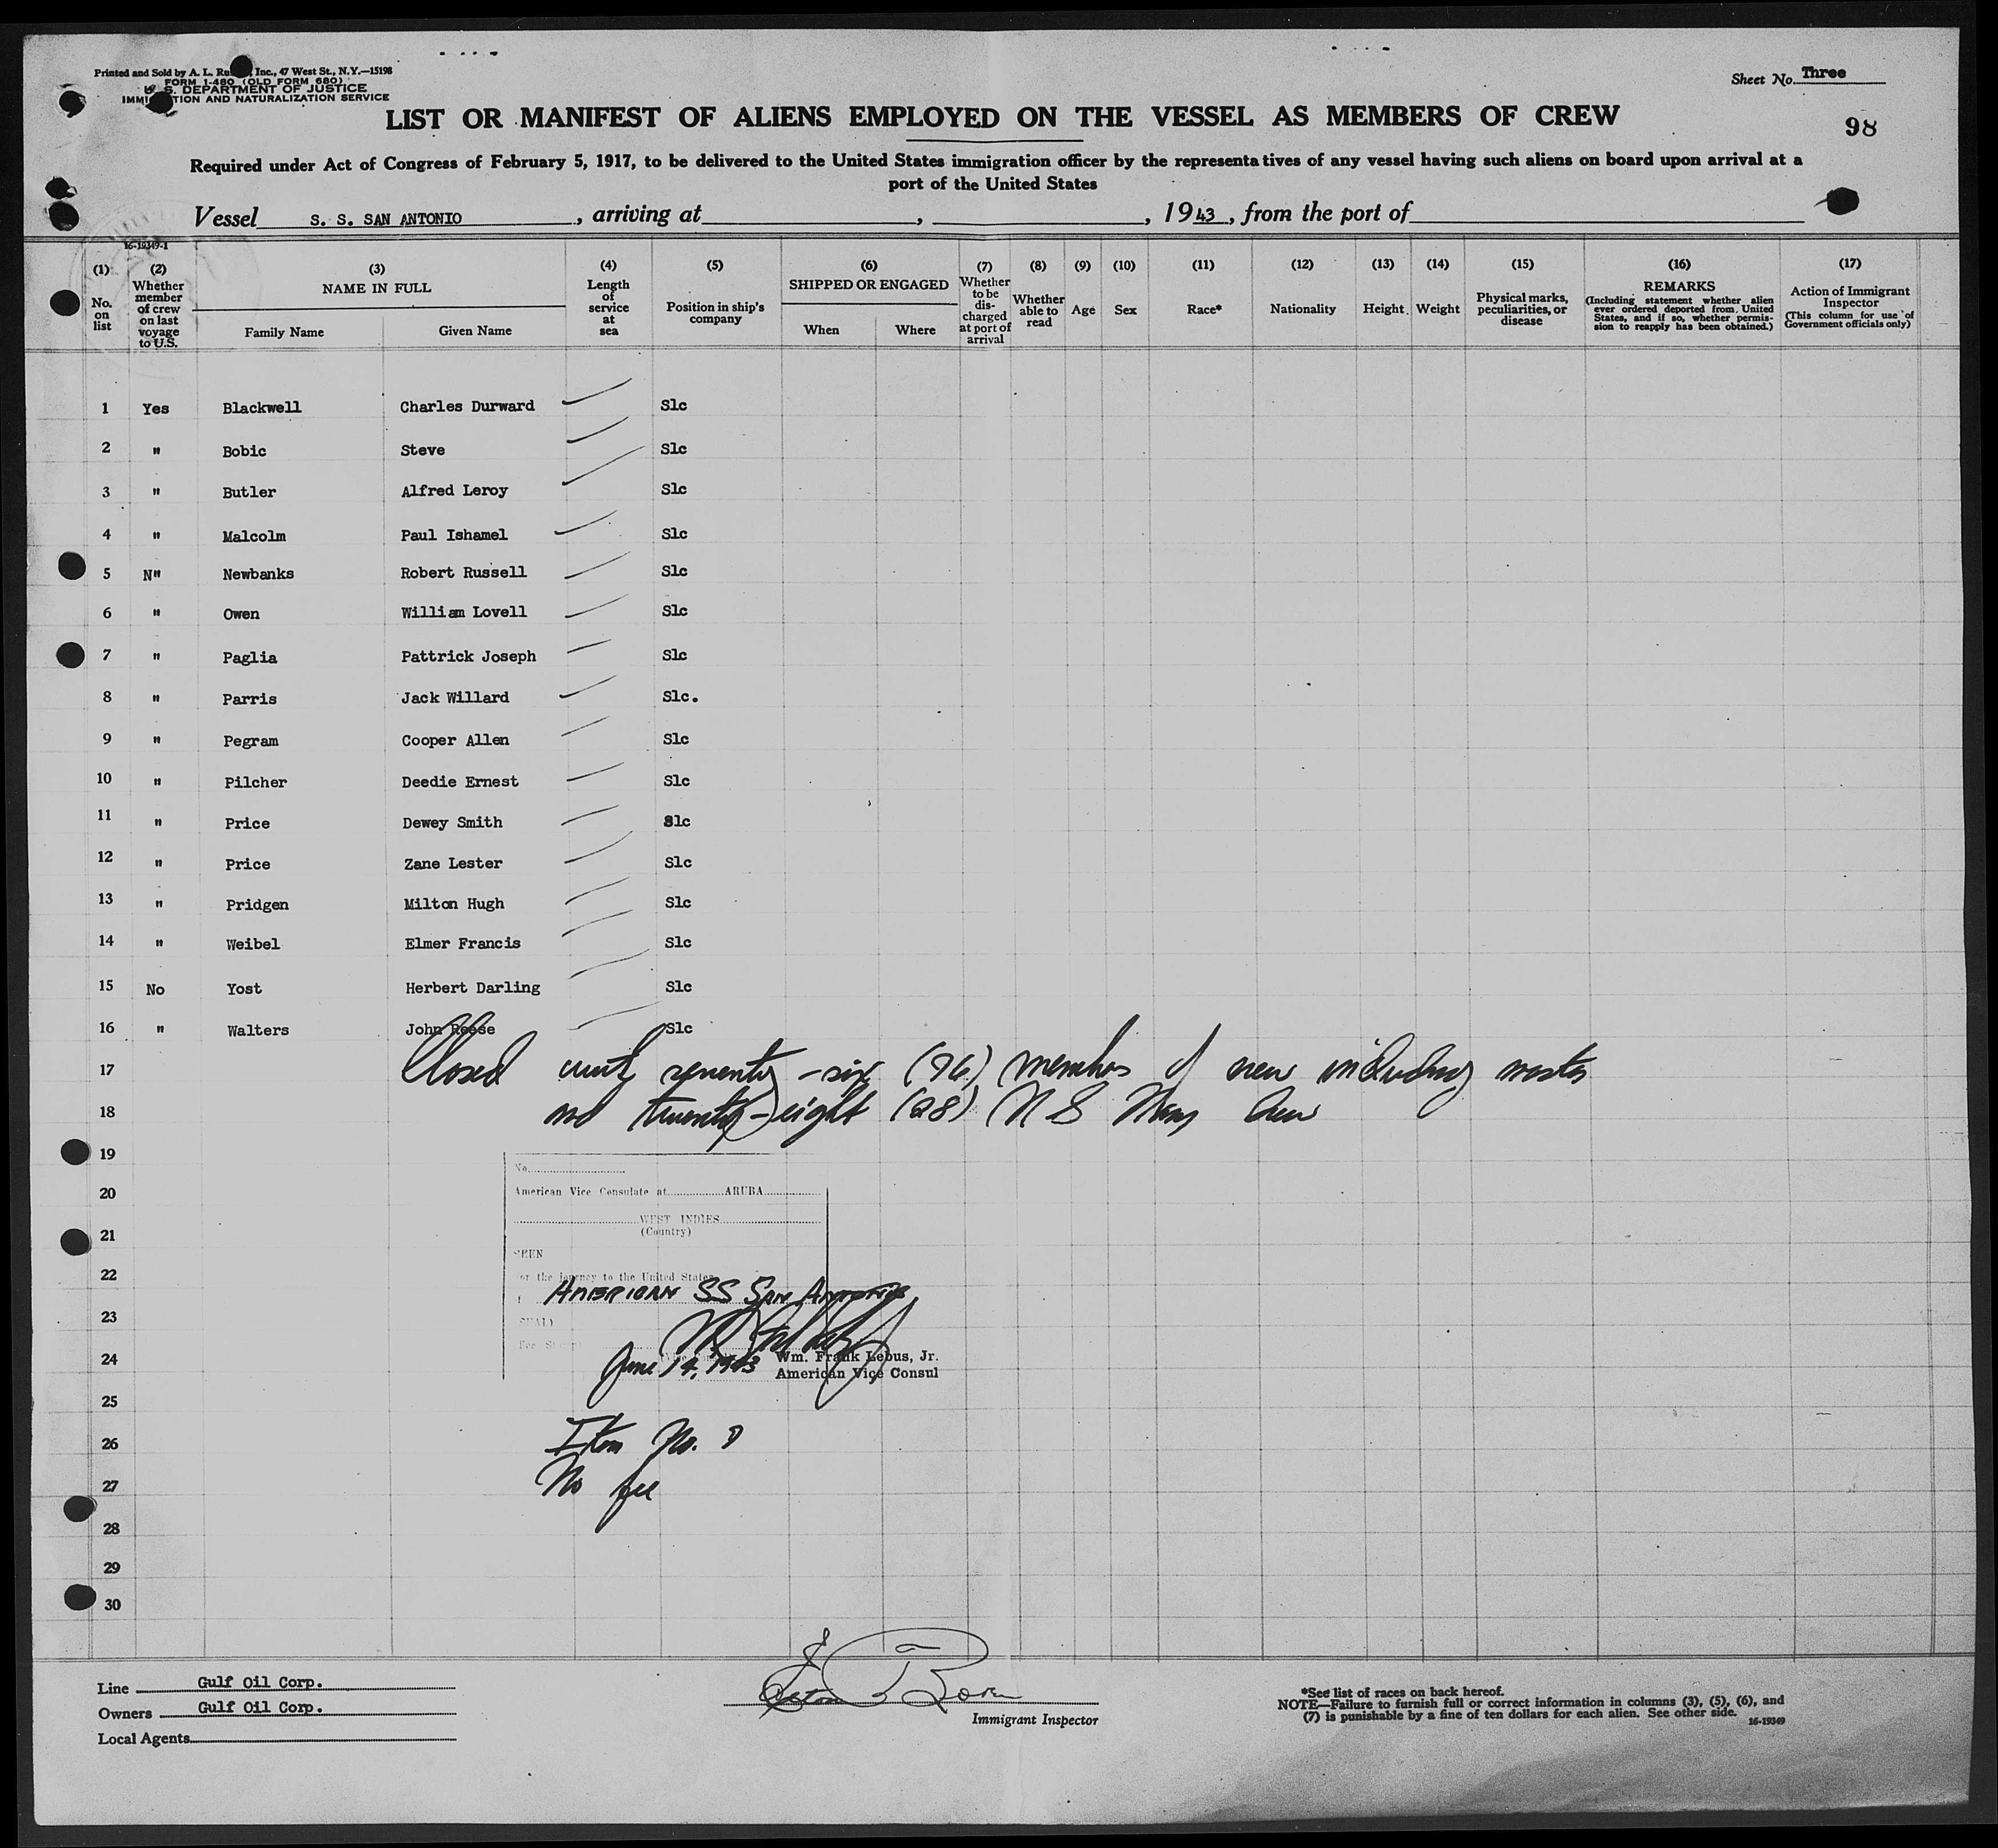 Printed and Sold by A. L. Inc., 47 West St., N.Y.—15198
FORM I-480 (OLD FORM 680)
U. S. DEPARTMENT OF JUSTICE
IMMIGRATION AND NATURALIZATION SERVICE
Sheet No. Three
98
LIST OR MANIFEST OF ALIENS EMPLOYED ON THE VESSEL AS MEMBERS OF CREW
Required under Act of Congress of February 5, 1917, to be delivered to the United States immigration officer by the representatives of any vessel having such aliens on board upon arrival at a
port of the United States
Vessel S. S. SAN ANTONIO, arriving at , , 1943, from the port of
16-19349-1
(1) No. on list
(2) Whether member of crew on last voyage to U.S.
(3) NAME IN FULL Family Name Given Name
(4) Length of service at sea
(5) Position in ship's company
(6) SHIPPED OR ENGAGED When Where
(7) Whether to be discharged at port of arrival
(8) Whether able to read
(9) Age
(10) Sex
(11) Race*
(12) Nationality
(13) Height
(14) Weight
(15) Physical marks, peculiarities, or disease
(16) REMARKS (Including statement whether alien ever ordered deported from United States, and if so, whether permission to reapply has been obtained.)
(17) Action of Immigrant Inspector (This column for use of Government officials only)
1 Yes Blackwell Charles Durward Slc
2 " Bobic Steve Slc
3 " Butler Alfred Leroy Slc
4 " Malcolm Paul Ishamel Slc
5 N" Newbanks Robert Russell Slc
6 " Owen William Lovell Slc
7 " Paglia Pattrick Joseph Slc
8 " Parris Jack Willard Slc.
9 " Pegram Cooper Allen Slc
10 " Pilcher Deedie Ernest Slc
11 " Price Dewey Smith Slc
12 " Price Zane Lester Slc
13 " Pridgen Milton Hugh Slc
14 " Weibel Elmer Francis Slc
15 No Yost Herbert Darling Slc
16 " Walters John Reese Slc
17 Closed with seventy-six (76) members of crew including master
18 and twenty-eight (28) Navy
19
No.
20
American Vice Consulate at ARUBA
WEST INDIES
21
(Country)
SEEN
22
for the journey to the United States
AMERICAN SS SAN ANTONIO
23
24
June 14, 1943 Wm. Frank Lebus, Jr.
American Vice Consul
25
26 Item No.
27 No fee
28
29
30
Line Gulf Oil Corp.
Owners Gulf Oil Corp.
Local Agents
Immigrant Inspector
*See list of races on back hereof.
NOTE—Failure to furnish full or correct information in columns (3), (5), (6), and
(7) is punishable by a fine of ten dollars for each alien. See other side.
16-19349